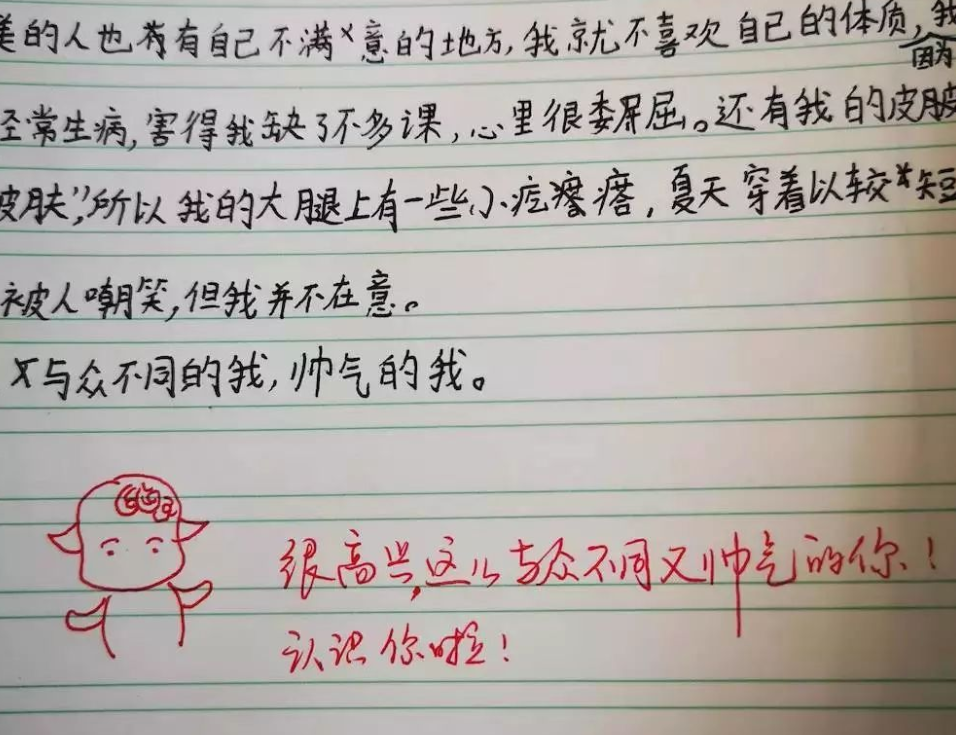 美的人也有自己不满意的地方,我就不喜欢自己的体质,我
因为
经常生病,害得我缺了不多课,心里很委屈。还有我的皮肤
皮肤”,所以我的大腿上有一些小疙瘩,夏天穿着以较短
被人嘲笑,但我并不在意。
又与众不同的我,帅气的我。
很高兴,这么与众不同又帅气的你!
认识你啦!